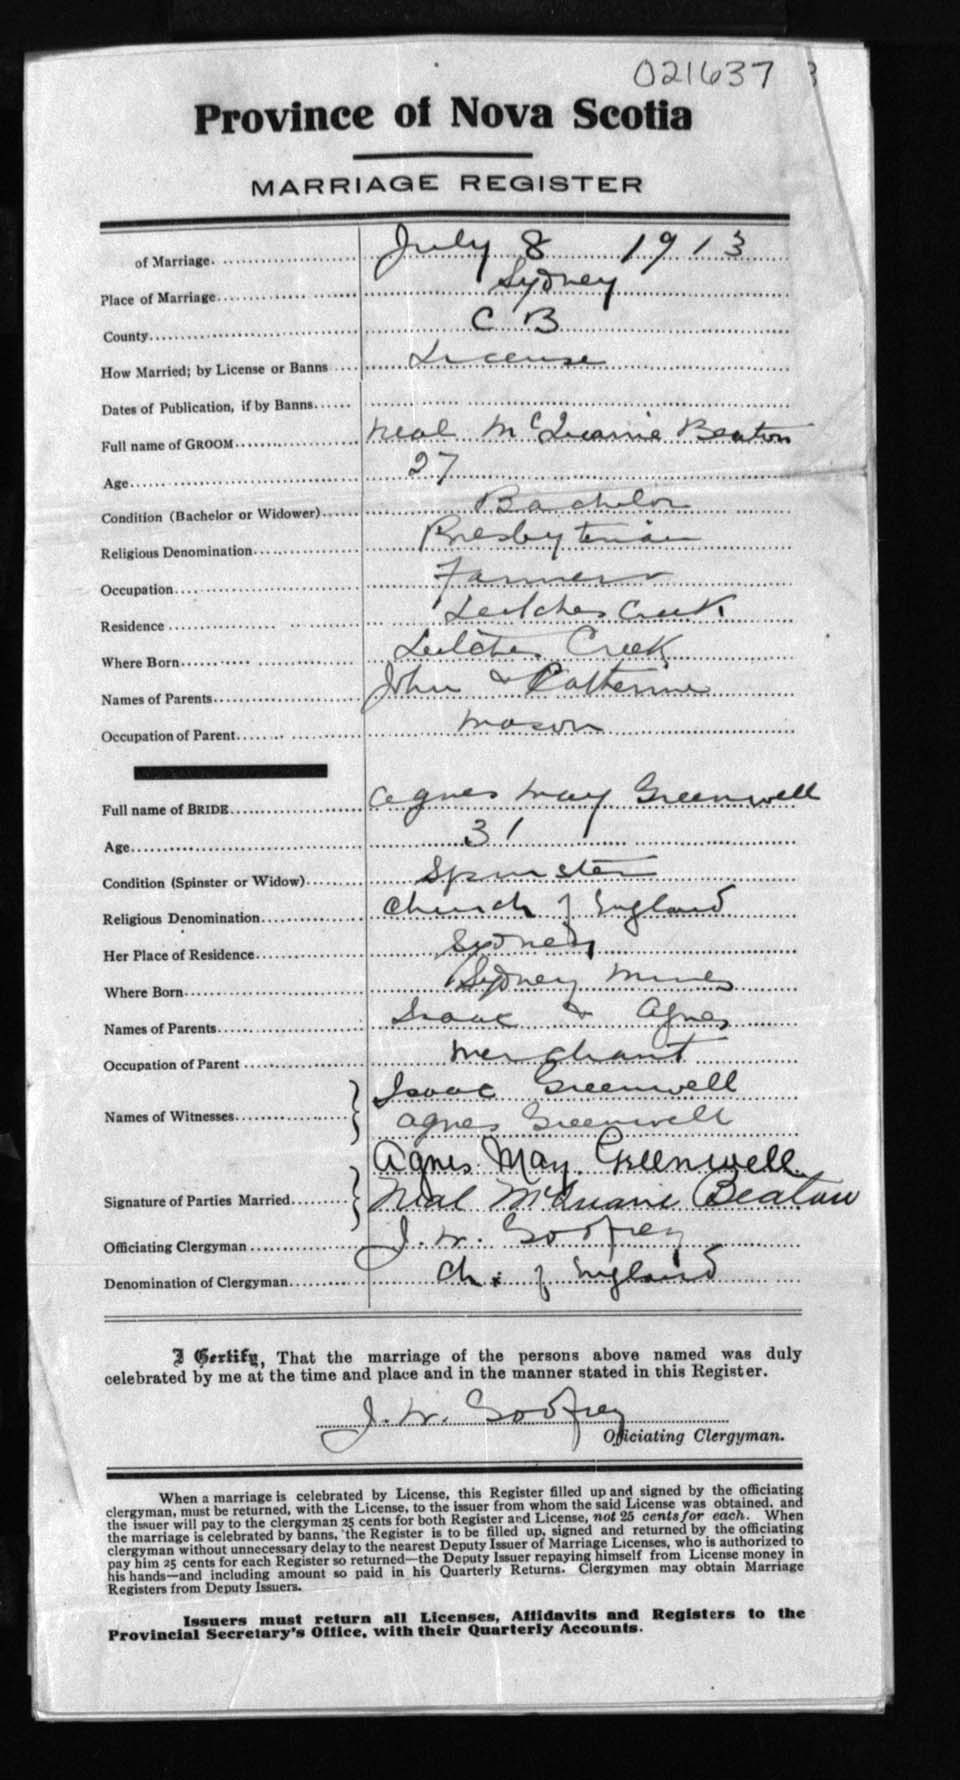 021637
Province of Nova Scotia
MARRIAGE REGISTER
of Marriage July 8 1913
Place of Marriage Sydney
County C B
How Married; by License or Banns License
Dates of Publication, if by Banns
Full name of GROOM Neal Beaton
Age 27
Condition (Bachelor or Widower) Bachelor
Religious Denomination Presbyterian
Occupation Farmer
Residence Leitches Creek
Where Born Leitches Creek
Names of Parents John & Catherine
Occupation of Parent Mason
Full name of BRIDE Agnes May Greenwell
Age 31
Condition (Spinster or Widow) Spinster
Religious Denomination Church of England
Her Place of Residence Sydney
Where Born Sydney Mines
Names of Parents Isaac & Agnes
Occupation of Parent Merchant
Names of Witnesses Isaac Greenwell
Agnes Greenwell
Agnes May Greenwell
Signature of Parties Married Neal Beaton
Officiating Clergyman J. W. Godfrey
Denomination of Clergyman Ch. of England
I Certify, That the marriage of the persons above named was duly
celebrated by me at the time and place and in the manner stated in this Register.
J. W. Godfrey
Officiating Clergyman.
When a marriage is celebrated by License, this Register filled up and signed by the officiating
clergyman, must be returned, with the License, to the issuer from whom the said License was obtained, and
the issuer will pay to the clergyman 25 cents for both Register and License, not 25 cents for each. When
the marriage is celebrated by banns, the Register is to be filled up, signed and returned by the officiating
clergyman without unnecessary delay to the nearest Deputy Issuer of Marriage Licenses, who is authorized to
pay him 25 cents for each Register so returned—the Deputy Issuer repaying himself from License money in
his hands—and including amount so paid in his Quarterly Returns. Clergymen may obtain Marriage
Registers from Deputy Issuers.
Issuers must return all Licenses, Affidavits and Registers to the
Provincial Secretary's Office, with their Quarterly Accounts.